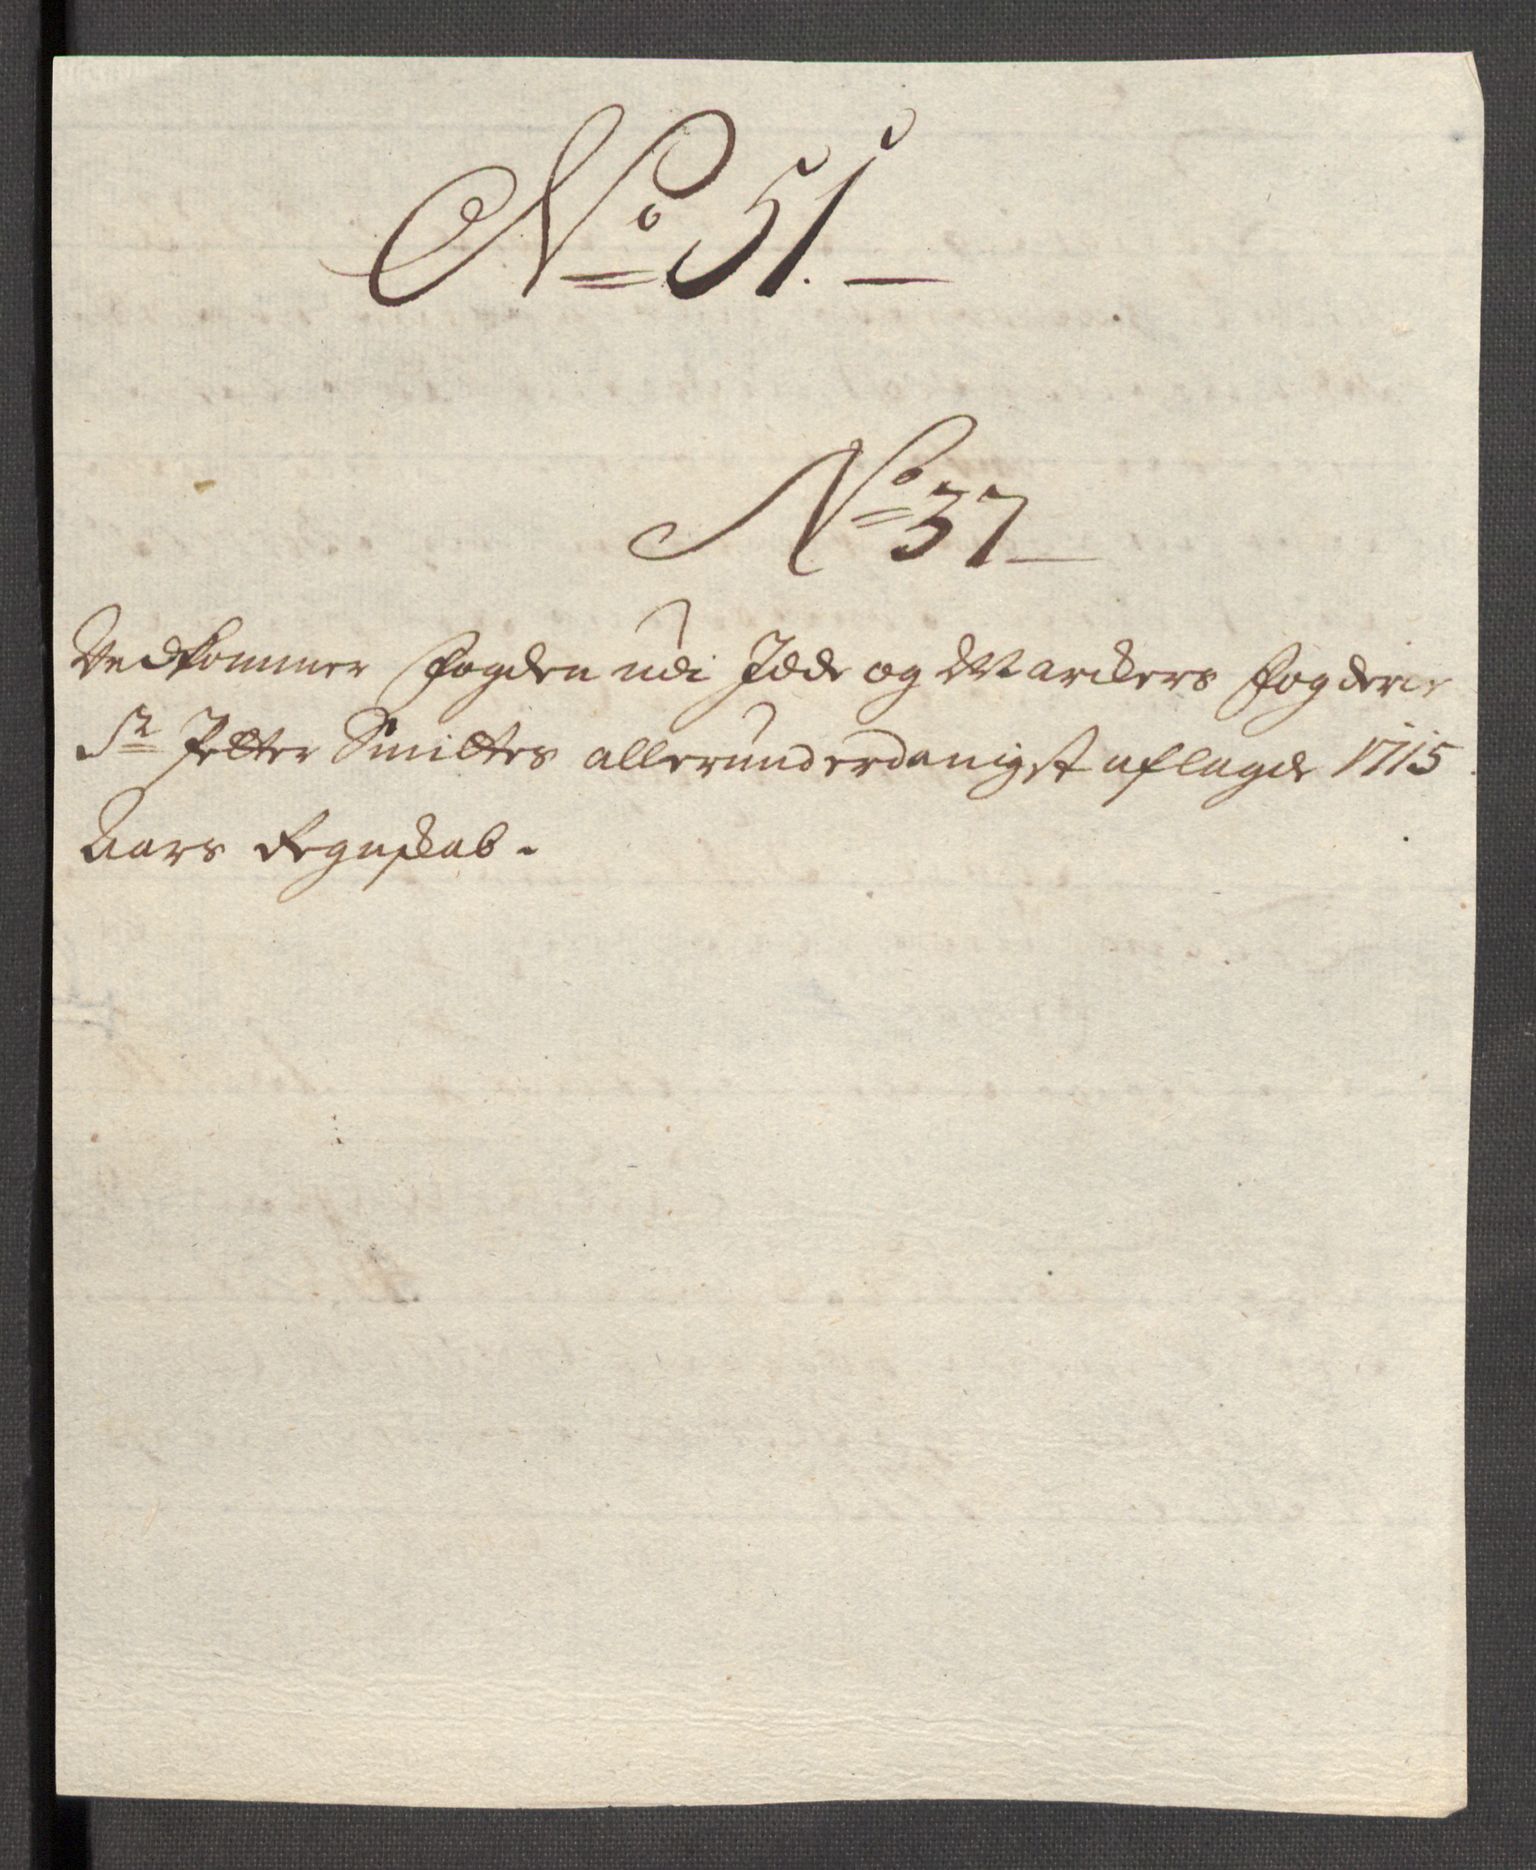 No 51.
No 37
Vedkommer Fogden udi Idde og Markers Fogderie
Sr Petter Smittes allerunderdanigst aflagde 1715
Aars Regnskab.